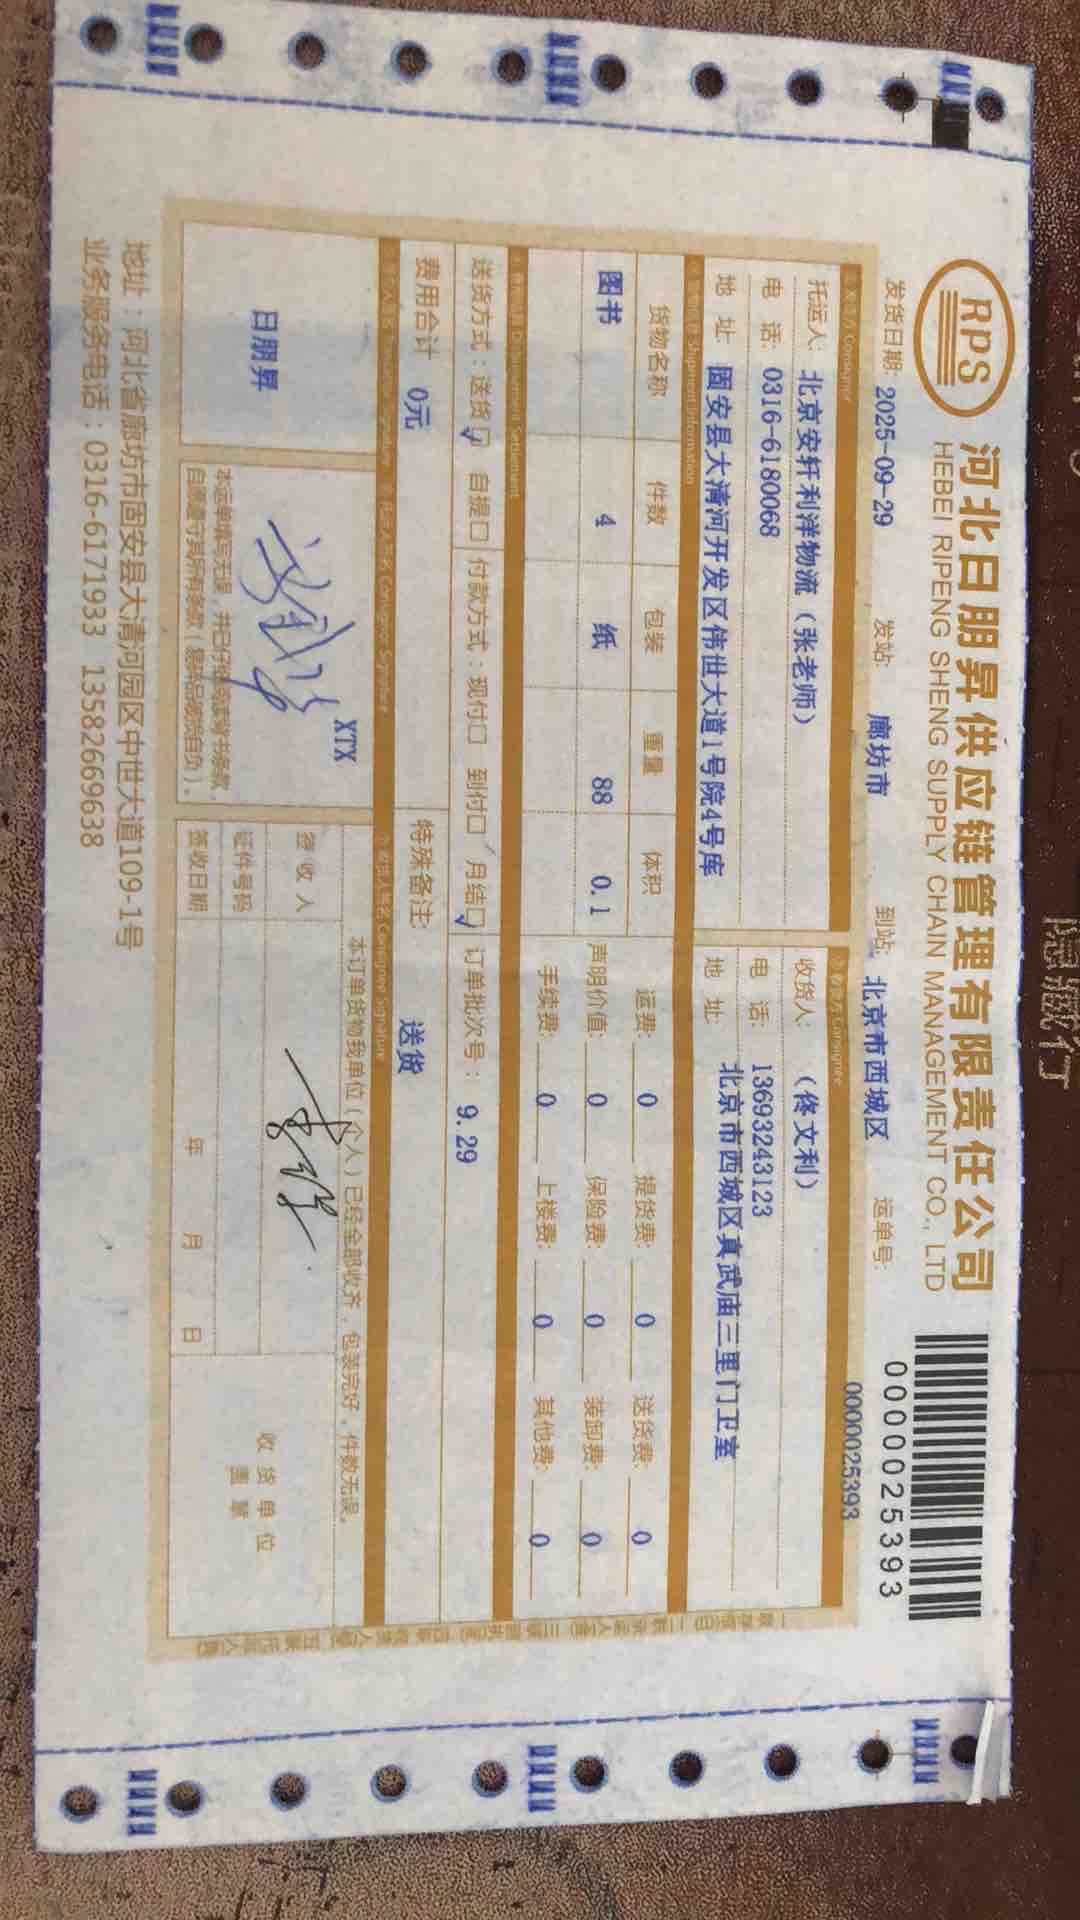 RPS
河北日朋昇供应链管理有限责任公司
HEBEI RIPENG SHENG SUPPLY CHAIN MANAGEMENT CO., LTD
0000025393
发货日期: 2025-09-29 发站: 廊坊市 到站: 北京市西城区 运单号:
0000025393
托运人: 北京安轩利洋物流（张老师）
电 话: 0316-6180068
地 址: 固安县大清河开发区伟世大道1号院4号库
收货人: （佟文利）
电 话: 13693243123
地 址: 北京市西城区真武庙三里门卫室
货物名称 件数 包装 重量 体积
图书 4 纸 88 0.1
运费: 0 提货费: 0 送货费: 0
声明价值: 0 保险费: 0 装卸费: 0
手续费: 0 上楼费: 0 其他费: 0
送货方式：送货☑ 自提□ 付款方式：现付□ 到付□ 月结☑ 订单批次号： 9.29
费用合计 0元
特殊备注: 送货
日朋昇
XTX
本运单填写无误，并已仔细阅读背书条款，
自愿遵守其所有条款（易碎品破损自负）。
本订单货物我单位（个人）已经全部收齐，包装完好，件数无误。
签 收 人
证件号码
签收日期 年 月 日
收 货 单 位
盖 章
地址：河北省廊坊市固安县大清河园区中世大道109-1号
业务服务电话：0316-6171933 13582669638